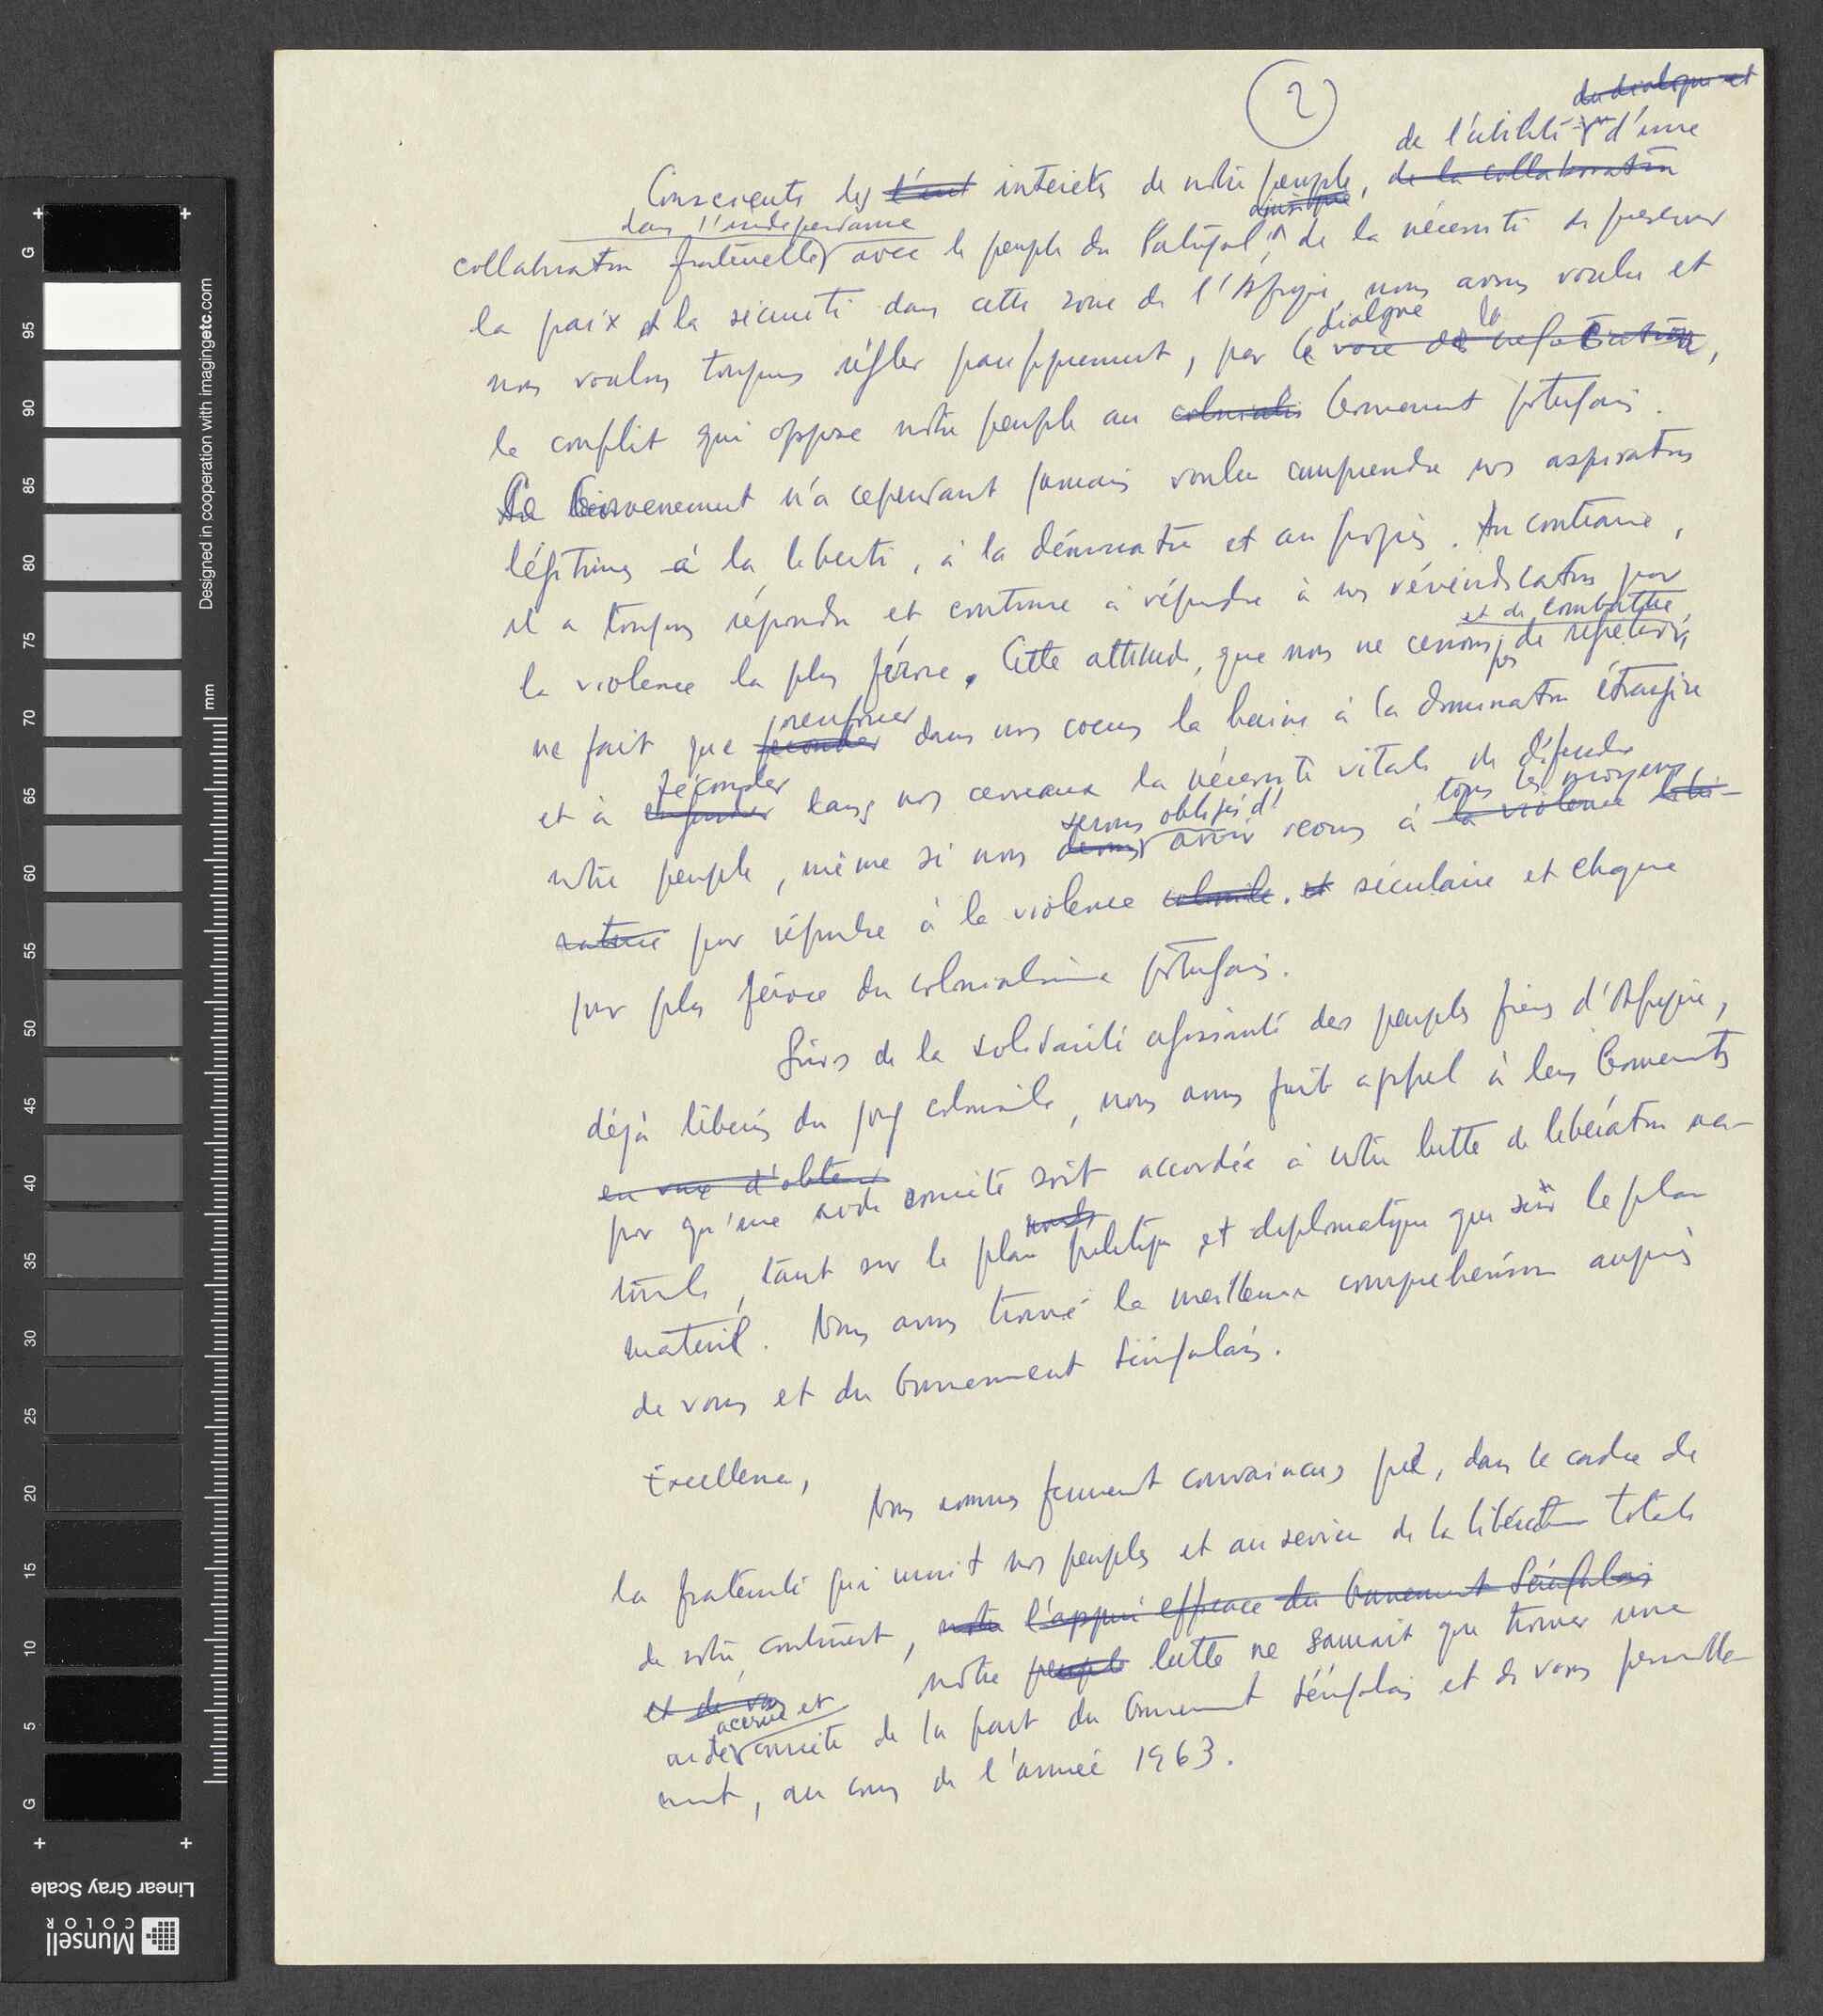 2
du dialogue et
de l'utilité d'une
Conscients des intérêts de notre peuple, de la collaboration
dans l'indépendance
ainsi que
collaboration fraternelle avec le peuple du Portugal de la nécessité de préserver
la paix et la sécurité dans cette zone de l'Afrique, nous avons voulu et
dialogue
nous voulons toujours régler pacifiquement, par le voie de la négociation,
le conflit qui oppose notre peuple au colonialis Gouvernement portugais.
Ce Gouvernement n'a cependant jamais voulu comprendre nos aspirations
légitimes à la liberté, à la démocratie et au progrès. Au contraire,
il a toujours répondu et continue à répondre à nos révéndications par
et de combattre,
la violence la plus féroce. Cette attitude, que nous ne cessons pas de
renforcer
ne fait que féconder dans nos coeurs la haine à la domination étrangère
féconder
et à dans nos cerveaux la nécessité vitale de défendre
serons obligés d'
tous les moyens
notre peuple, même si nous devons avoir recours à la violence libé-
ratrice pour répondre à la violence coloniale. et séculaire et chaque
jour plus féroce du colonialisme portugais.
Sûrs de la solidarité agissante des peuples frères d'Afrique,
déjà libérés du joug coloniale, nous avons fait appel à leurs Gouvernements
en vue d'obtenir
pour qu'une aide concrète soit accordée à notre lutte de libération na-
tionale, tant sur le plan politique et diplomatique que sur le plan
matériel. Nous avons trouvé la meilleure compréhension auprès
de vous et du Gouvernement Sénégalais.
Excellence,
Nous sommes fermement convaincus que, dans le cadre de
la fraternité qui unit nos peuples et au service de la libération totale
de notre continent, notre l'appui efficace du Gouvernement Sénégalais
et de vous notre peuple lutte ne saurait que trouver une
accrue et
aide concrète de la part du Gouvernement Sénégalais et de vous personnelle-
ment, au cours de l'année 1963.
G
95
90
85
80
75
70
65
60
55
50
45
40
35
30
25
20
15
10
5
G
Designed in cooperation with imagingetc.com
mm
Linear Gray Scale
Munsell
COLOR